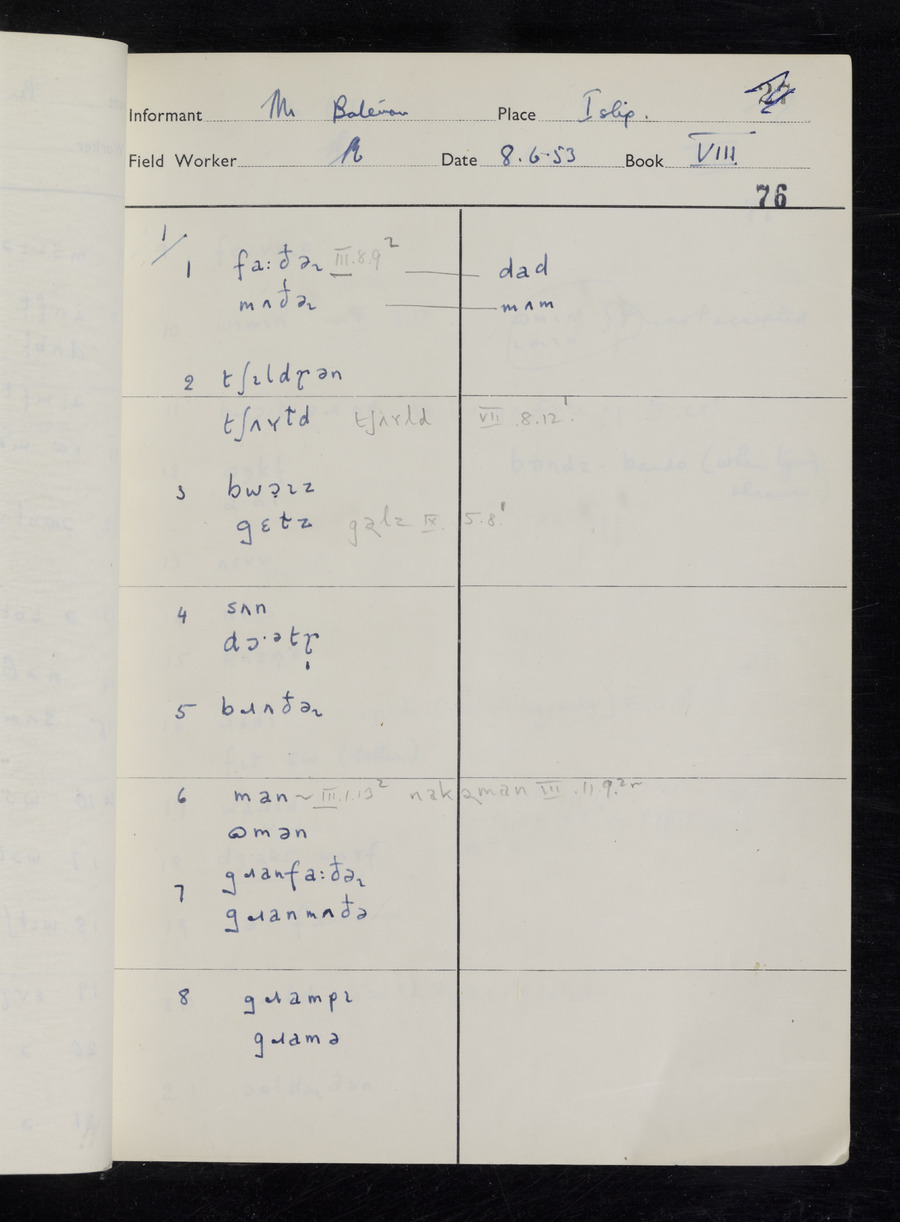 Informant Mr Place Islip.
Field Worker Date 8.6.53 Book VIII
76
1/
1 fa:ðəɹ III.8.9² dad
mʌðəɹ mʌm
2 tʃɪldɽən
tʃʌɤɫd tʃʌɤld VII 8.12¹
3 bwəɪz
gɛɫz gəlz IX. 5.8¹
4 sʌn
dɔ·ətɽ̩
5 bɹʌðəɹ
6 man ~ III.1.13² nakəman VII.11.9.²
ɷmən
7 gɹanfa:ðəɹ
gɹanmʌðə
8 gɹampɪ
gɹamə